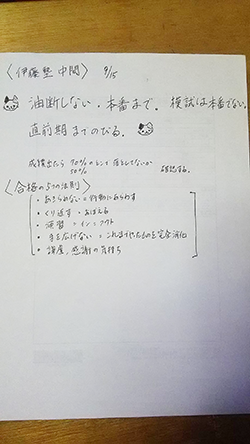 〈伊藤塾 中間〉 9/15
油断しない。本番まで。 模試は本番でない。
直前期までのびる。
成績出たら 70%のとして落としてないか
50% 確認する。
〈合格の5つの法則〉
・あきらめない=行動にあらわす
・くり返す=おぼえる
・演習 = イン=アウト
・手を広げない = これまでやったものを完全消化
・謙虚、感謝の気持ち